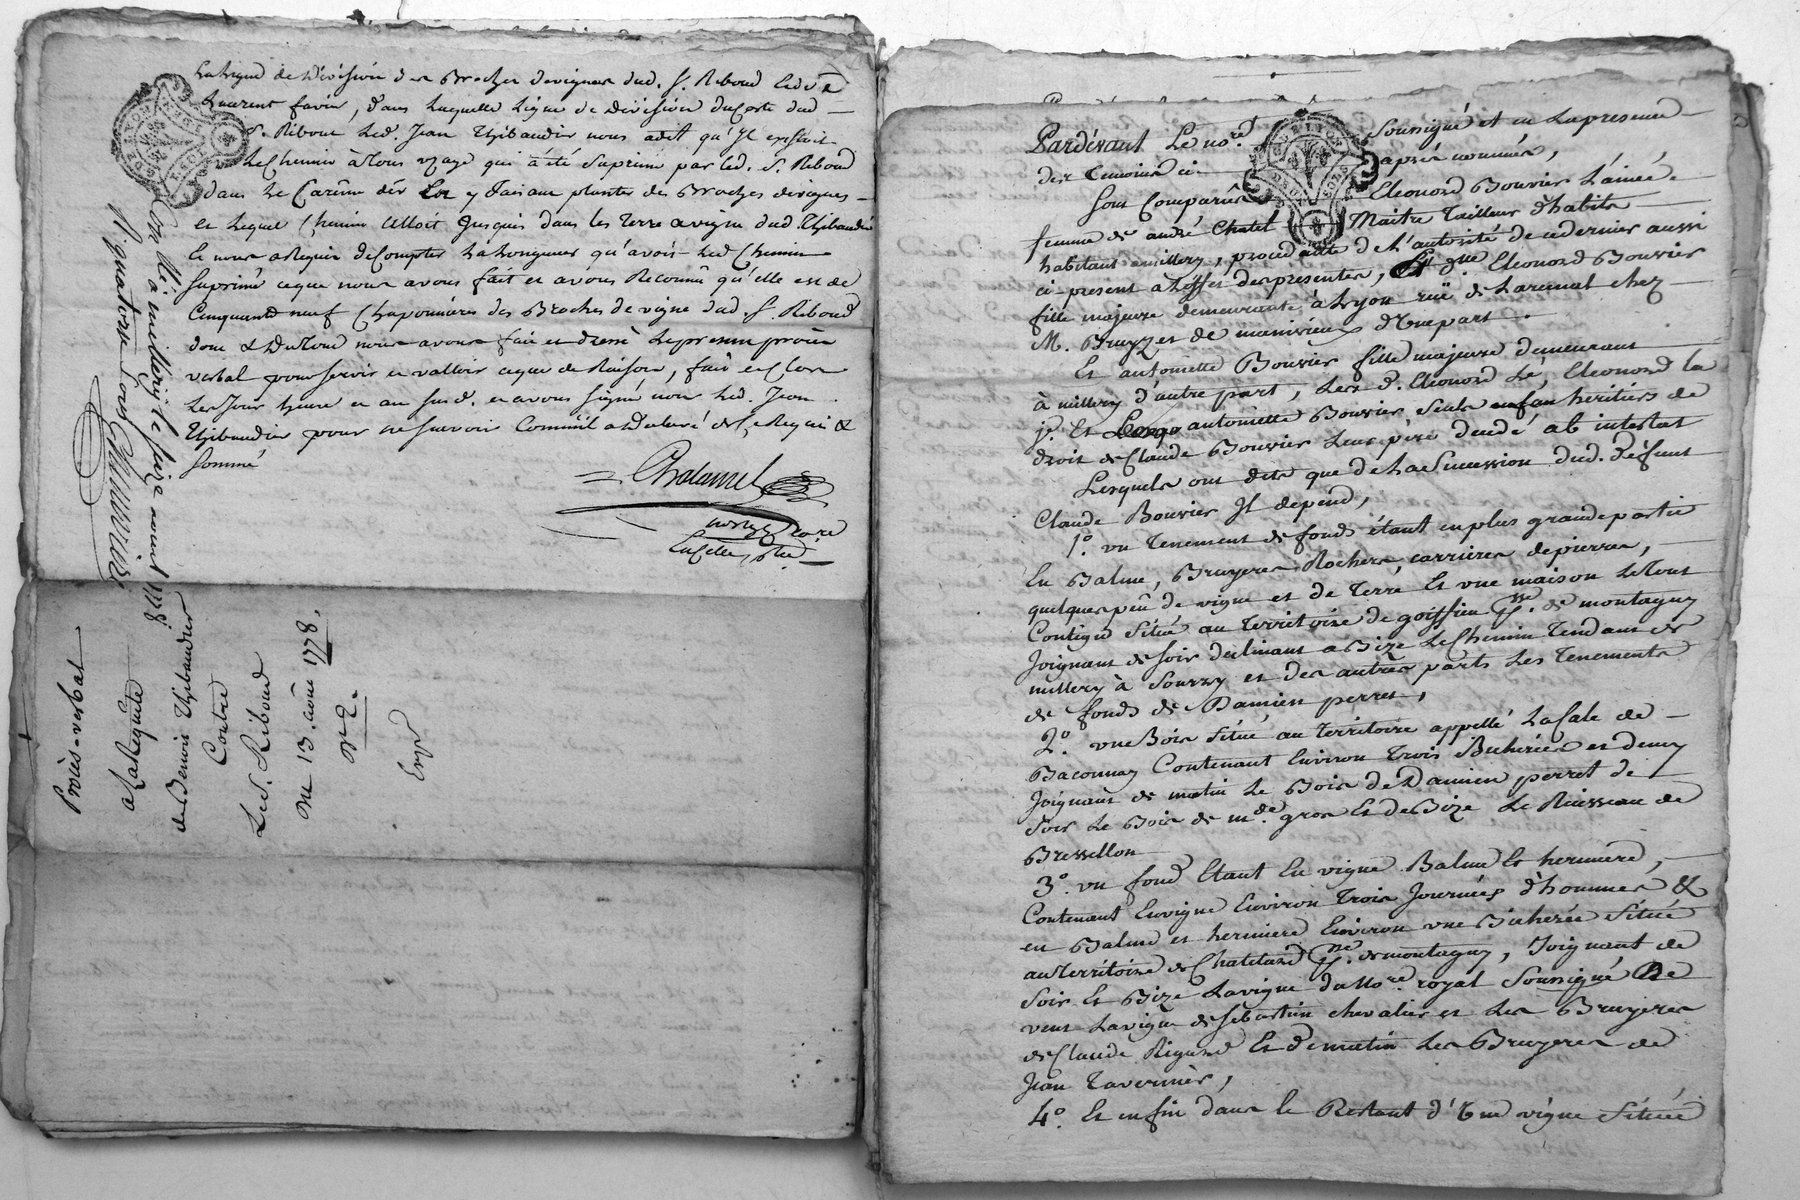 la ligne de division des Broches de vignes dud. S. Riboud & dud.
Laurent favier, dans laquelle ligne de division du Coste dud
S. Riboud led. Jean Thibaudier nous a dit qu'Il existoit
le Chemin à tous usage qui a été Suprimé par led. S. Riboud
dans le Carême der en y faisant planter des Broches de vignes
et lequel Chemin alloit Jusques dans les terre a vigne dud Thibaudier
et nous a Requis de Compter la Longueur qu'avoit led Chemin
Suprimé ce que nous avons fait et avons Reconnu qu'elle est de
Cinquante neuf Chaponnières des Broches de vigne dud. S. Riboud
dont & du tout nous avons fait et dressé le present procès
verbal pour servir et valloir ce que de Raison, fait et Clos
les Jour heure et an susd. et avons signé non led. Jean
Thibaudier pour ne sçavoir Comme il a declaré de ce Requis &
Sommé
Controllé à millery le seize aout 1778
R quatorze sous
Procès-verbal
a la Requete
de Benoit Thibaudier
Contre
Le S. Riboud
Du 13. août 1778.
Expé
Pardevant Le no.re Soussigné et en la presence
des temoins ci après nommés,
Sont Comparûs Eleonord Bouvier L'ainée
femme de andré Chatel Maitre tailleur d'habits
habitant a millery, procedante de L'autorité de ce dernier aussi
ci present a L'effet des presentes, Et d.lle Eleonord Bouvier
fille majeure demeurante à Lyon rüe de Larcenal chez
M. Bruyzet de manivieux d'Une part.
Et antoinette Bouvier fille majeure demeurant
à millery d'autre part, Lesd. d. Eleonord Lé, Eleonord la
je. Et antoinette Bouvier Seuls héritiers de
droit de Claude Bouvier Leur père decedé ab intestat
Lesquels ont dits que de La Succession dud. défunt
Claude Bouvier Il depend,
1.° un tenement de fonds étant en plus grande partie
En Balme, Bruyeres Rochers, carrières de pierres,
quelque peû de vigne et de Terre Et une maison Le tout
Contigu Situé au Territoire de goiffieu p.sse de montagny
Joignant de soir declinant a Bize Le Chemin tendant de
millery à Sourzy et des autres parts Les tenements
de fonds de Damien perret,
2.° une Bois Situé au territoire appellé La Sale de
Baconnay Contenant Environ trois Bicherées et demy
Joignant de matin Le Bois de Damien perret de
Soir Le Bois de m.de gros Et de Bize Le Ruisseau de
Bressellon
3.° un fond Etant En vigne Balme Et hermiere,
Contenant En vigne Environ trois Journées d'hommes &
en Balme et hermiere Environ une Bicherée Situé
au territoire de Chatelard p.sse de montagny, Joignant de
Soir Et Bize La vigne du No.re royal Soussigné De
vent La vigne de Sebastien chevalier et Les Bruyeres
de Claude Rigaud Et de matin Les Bruyeres de
Jean Tavernier,
4.° Et enfin dans le Restant d'Une vigne Située